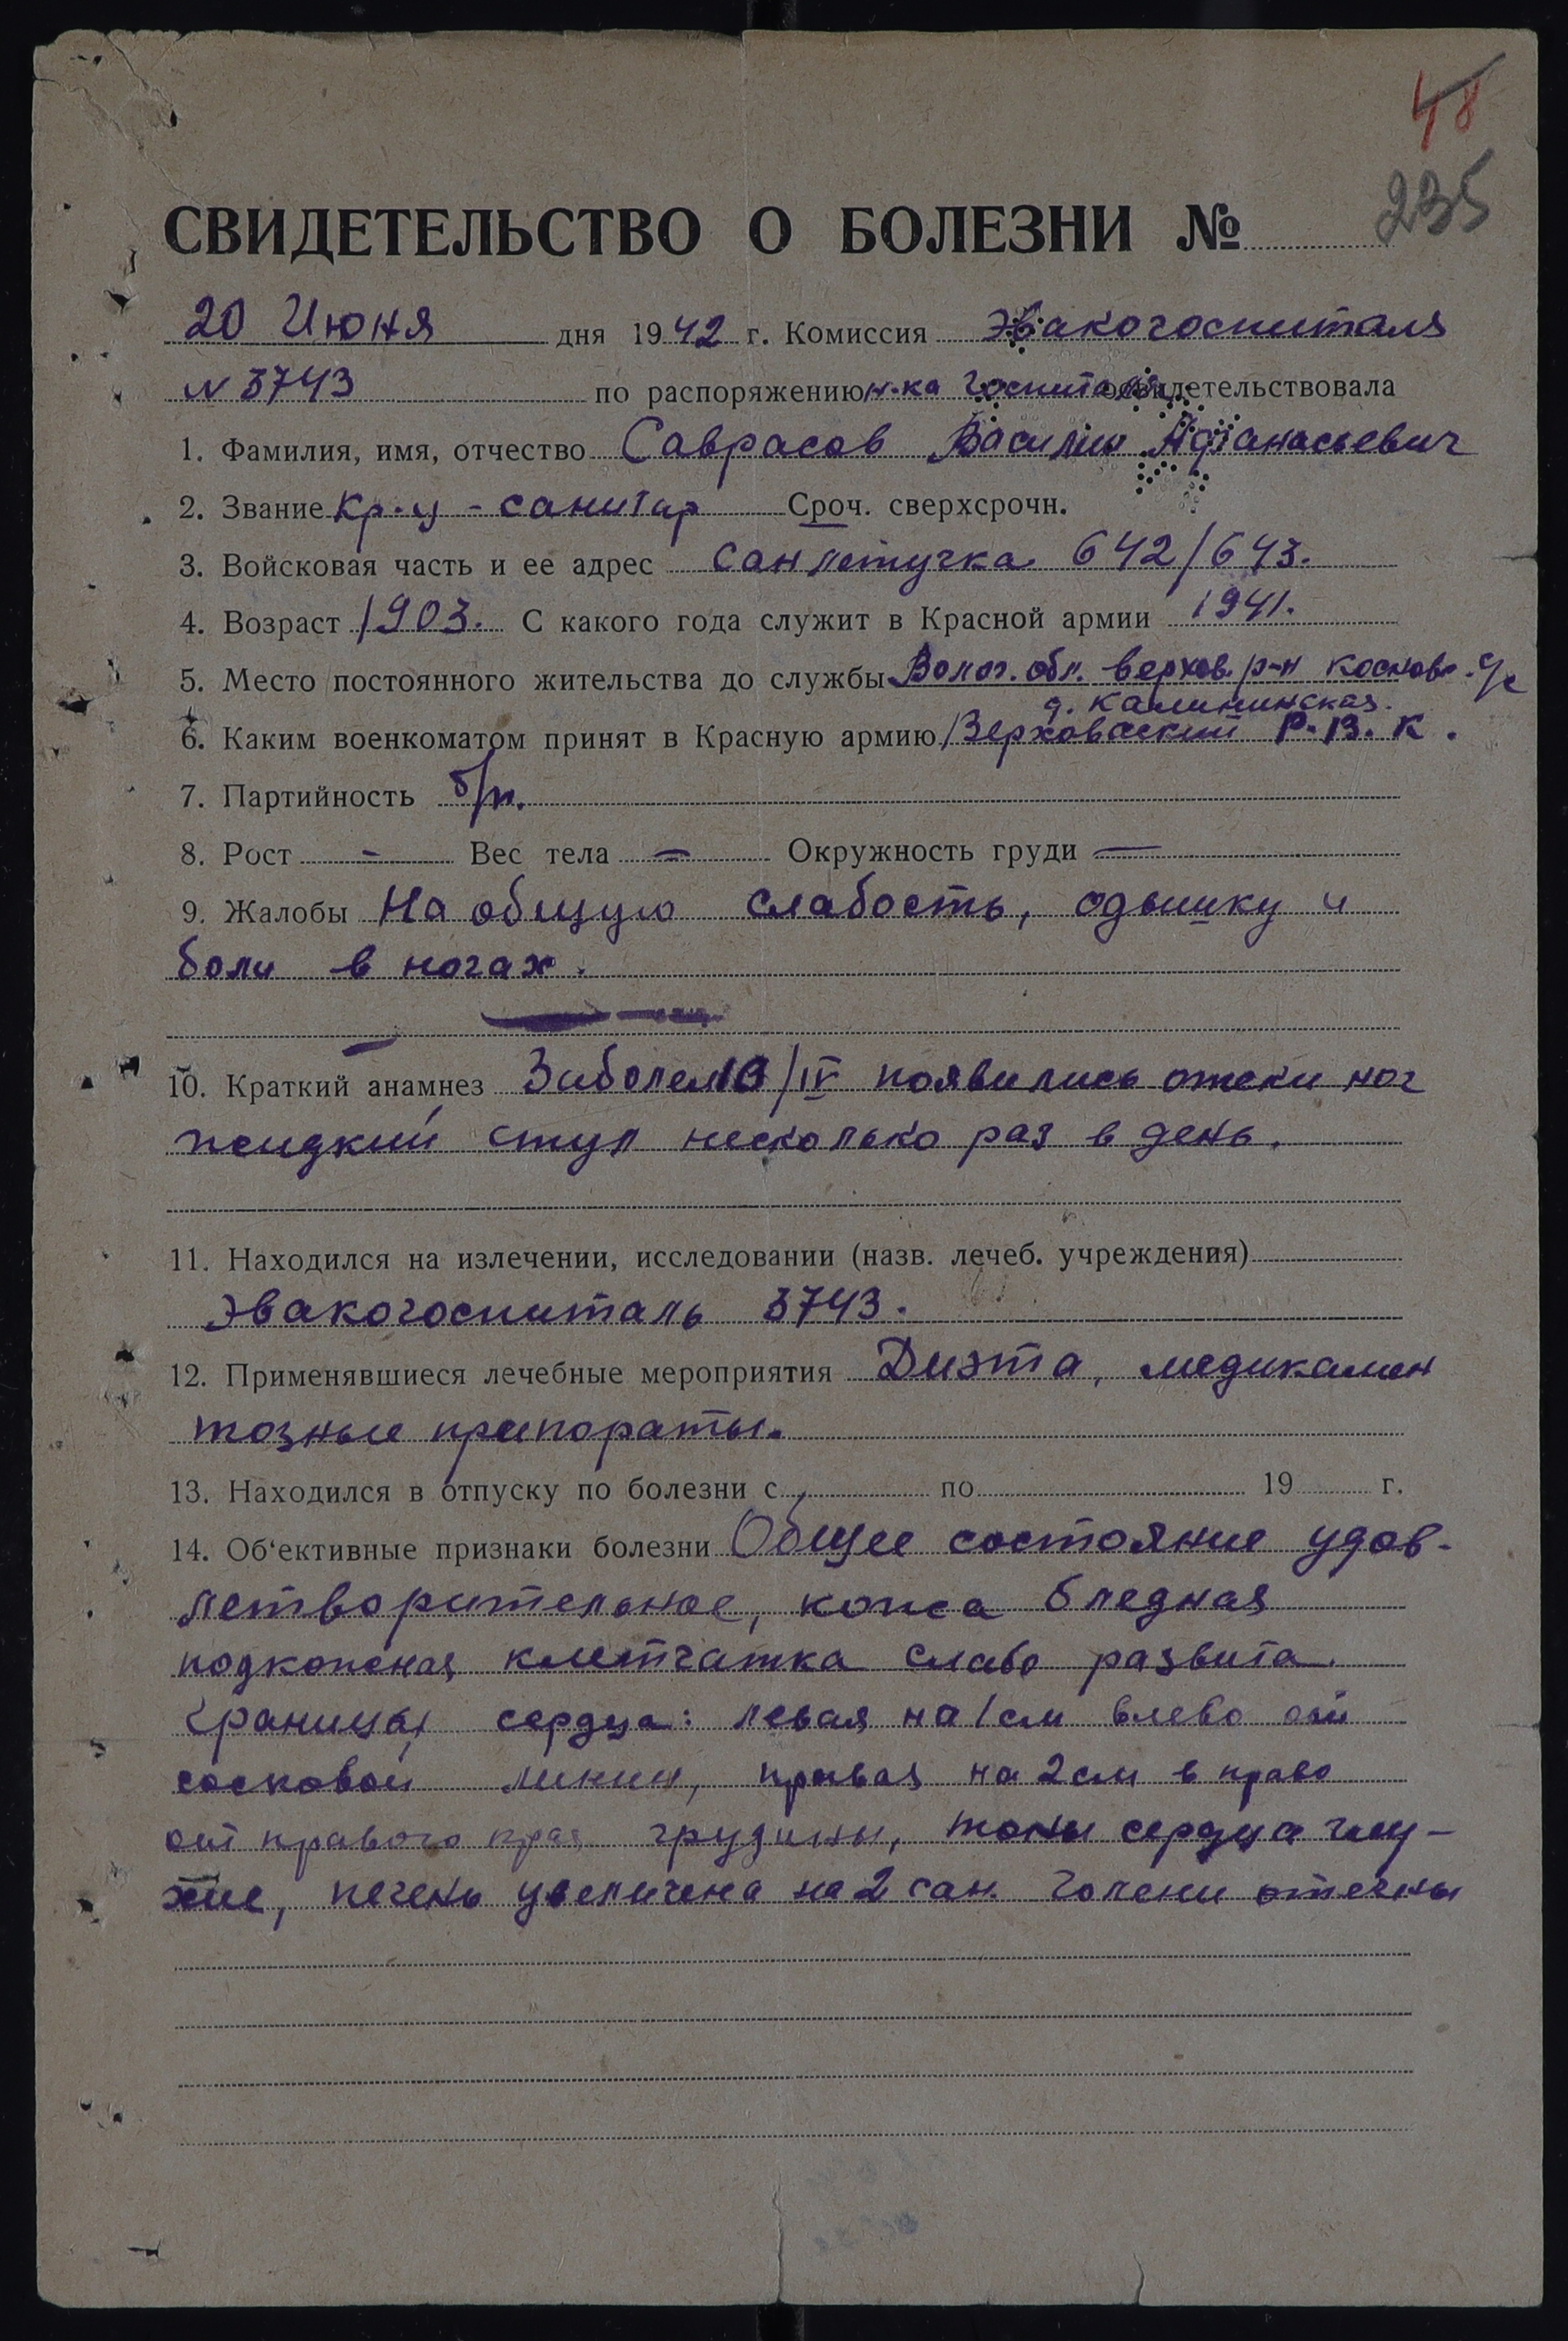 48
235
СВИДЕТЕЛЬСТВО О БОЛЕЗНИ №
20 Июня дня 1942 г. Комиссия эвакогоспиталя
N 3743 по распоряжению н-ка госпиталя освидетельствовала
1. Фамилия, имя, отчество Саврасов Василий Афанасьевич
2. Звание Кр-ц - санитар Сроч. сверхсрочн.
3. Войсковая часть и ее адрес Сан летучка 642/643.
4. Возраст 1903. С какого года служит в Красной армии 1941.
5. Место постоянного жительства до службы Волог. обл. Верхов. р-н Косков. с/с
д. Калининская.
6. Каким военкоматом принят в Красную армию Верховаский Р.В.К.
7. Партийность б/п.
8. Рост - Вес тела — Окружность груди —
9. Жалобы На общую слабость, одышку и
боли в ногах.
10. Краткий анамнез Заболел 10/IV появились отеки ног
жидкий стул несколько раз в день.
11. Находился на излечении, исследовании (назв. лечеб. учреждения)
Эвакогоспиталь 3743.
12. Применявшиеся лечебные мероприятия Диэта, медикамен
тозные препораты.
13. Находился в отпуску по болезни с по 19 г.
14. Об'ективные признаки болезни Общее состояние удов-
летворительное, кожа бледная
подкожная клетчатка слабо развита.
Границы сердца: левая на 1 см влево от
сосковой линии, правая на 2 см в право
от правого края грудины, тоны сердца глу-
хие, печень увеличена на 2 сан. Голени отечны